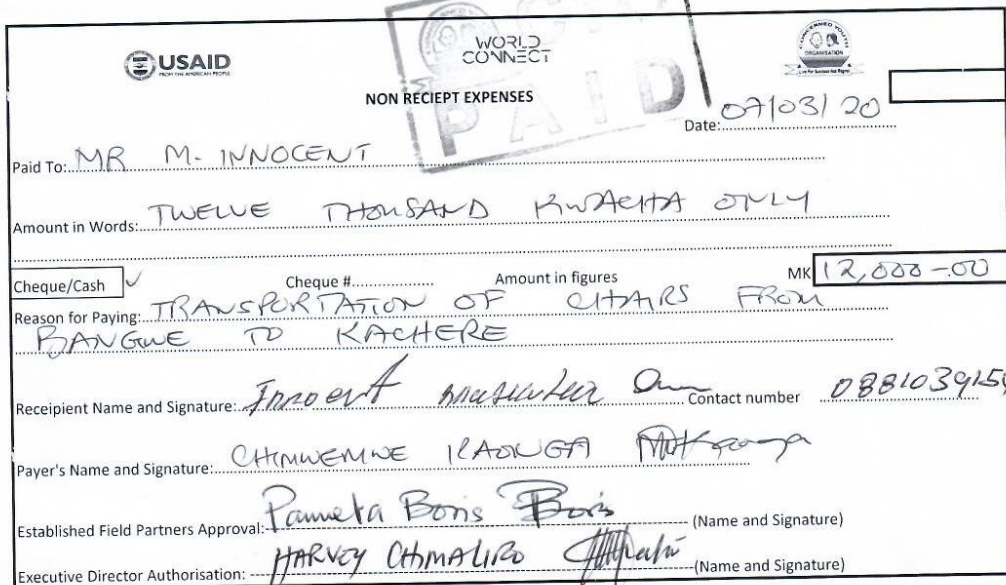 USAID
FROM THE AMERICAN PEOPLE
WORLD
CONNECT
CONCERNED YOUTH
ORGANISATION
NON RECIEPT EXPENSES
PAID
Date: 07/03/20
Paid To: MR M. INNOCENT
Amount in Words: TWELVE THOUSAND KWACHA ONLY
Cheque/Cash ✓ Cheque # Amount in figures MK 12,000-00
Reason for Paying: TRANSPORTATION OF CHAIRS FROM
BANGWE TO KACHERE
Receipient Name and Signature: Innocent Contact number 088103915
Payer's Name and Signature: CHIMWEMWE KAONGA
Established Field Partners Approval: Pameta Boris Boris (Name and Signature)
Executive Director Authorisation: HARVEY CHIMALIRO (Name and Signature)